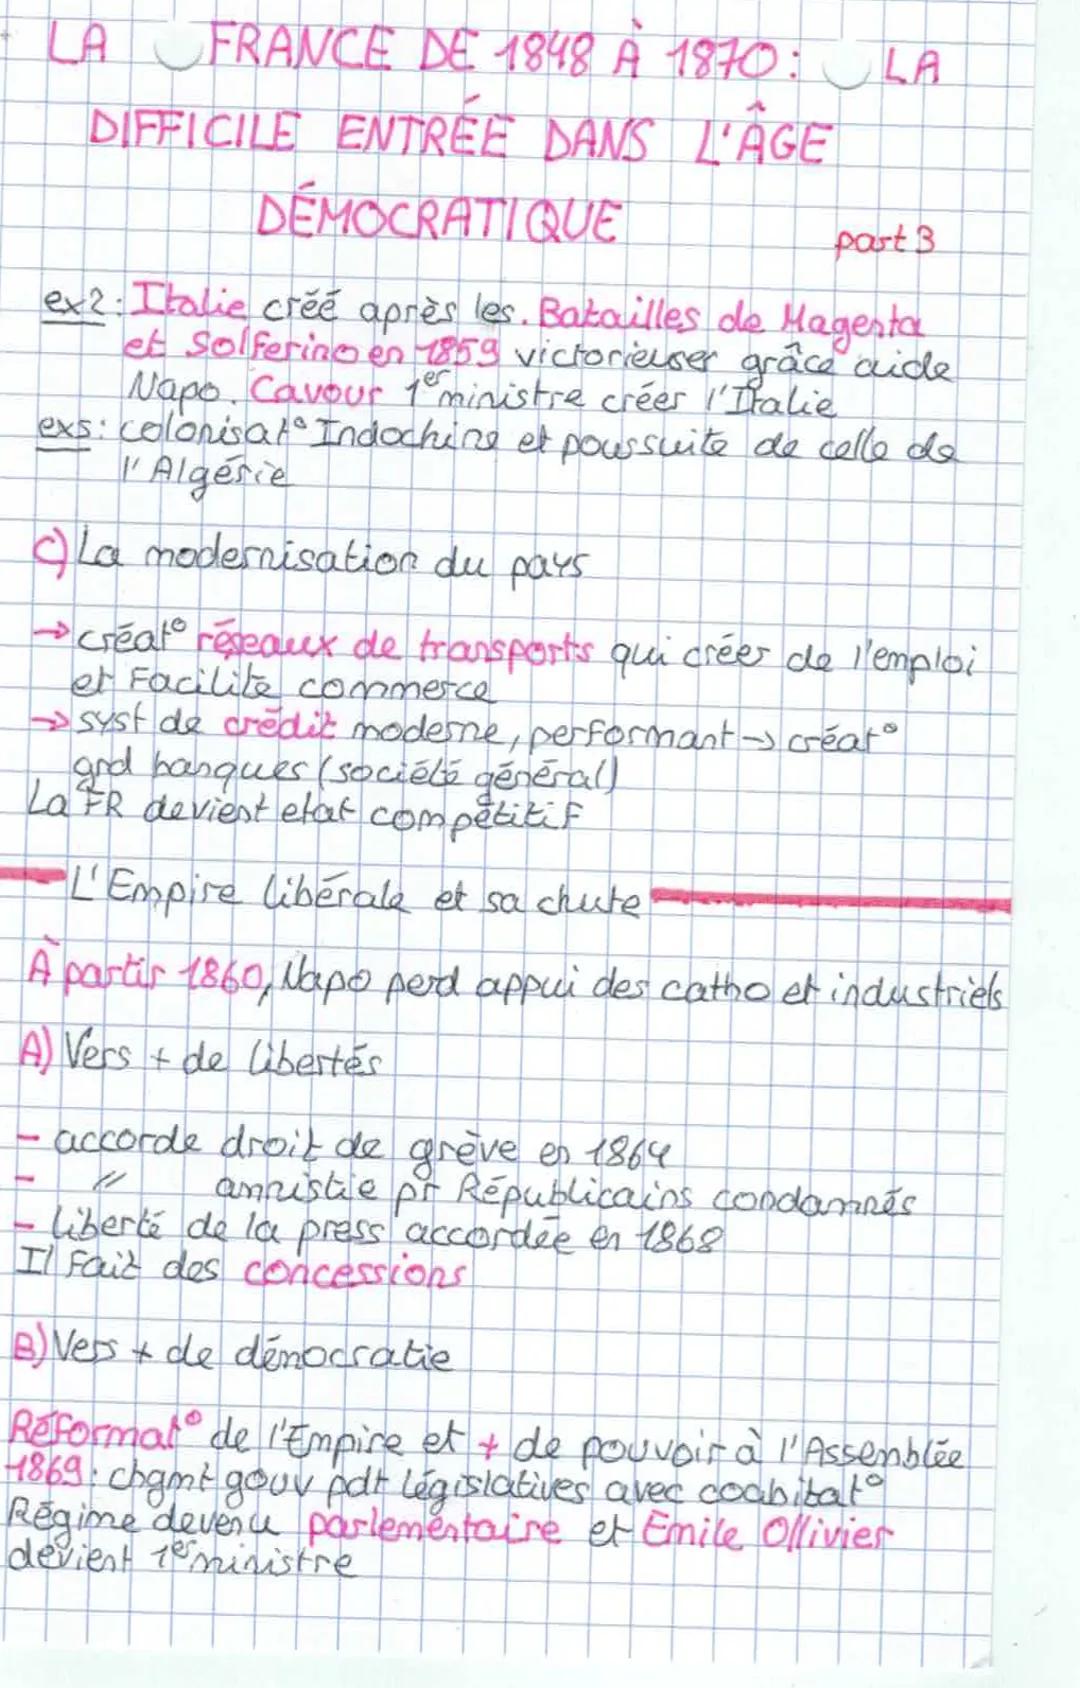 LA FRANCE DE 1848 À 1870: LA
DIFFICILE ENTRÉE DANS L'ÂGE
DÉMOCRATIQUE
part 3
ex2: Italie créé après les. Batailles de Magenta
et Solferino en 1859 victorieuser grâce aide
Napo. Cavour 1er ministre créer l'Italie
exs: colonisat° Indochine et poussuite de celle de
l'Algérie
C) La modernisation du pays
→ créat° réseaux de transports qui créer de l'emploi
et Facilite commerce
→ syst de crédit moderne, performant → créat°
grd banques (société général)
La FR devient etat compétitif
L'Empire libérale et sa chute
À partir 1860, Napo perd appui des catho et industriels
A) Vers + de libertés
- accorde droit de grève en 1864
- " amnistie pr Républicains condamnés
- liberté de la press accordée en 1868
Il Fait des concessions
B) Vers + de démocratie
Réformat° de l'Empire et + de pouvoir à l'Assemblée
1869: chgmt gouv pdt législatives avec coabitat°
Régime devenu parlementaire et Emile Ollivier
devient 1er ministre